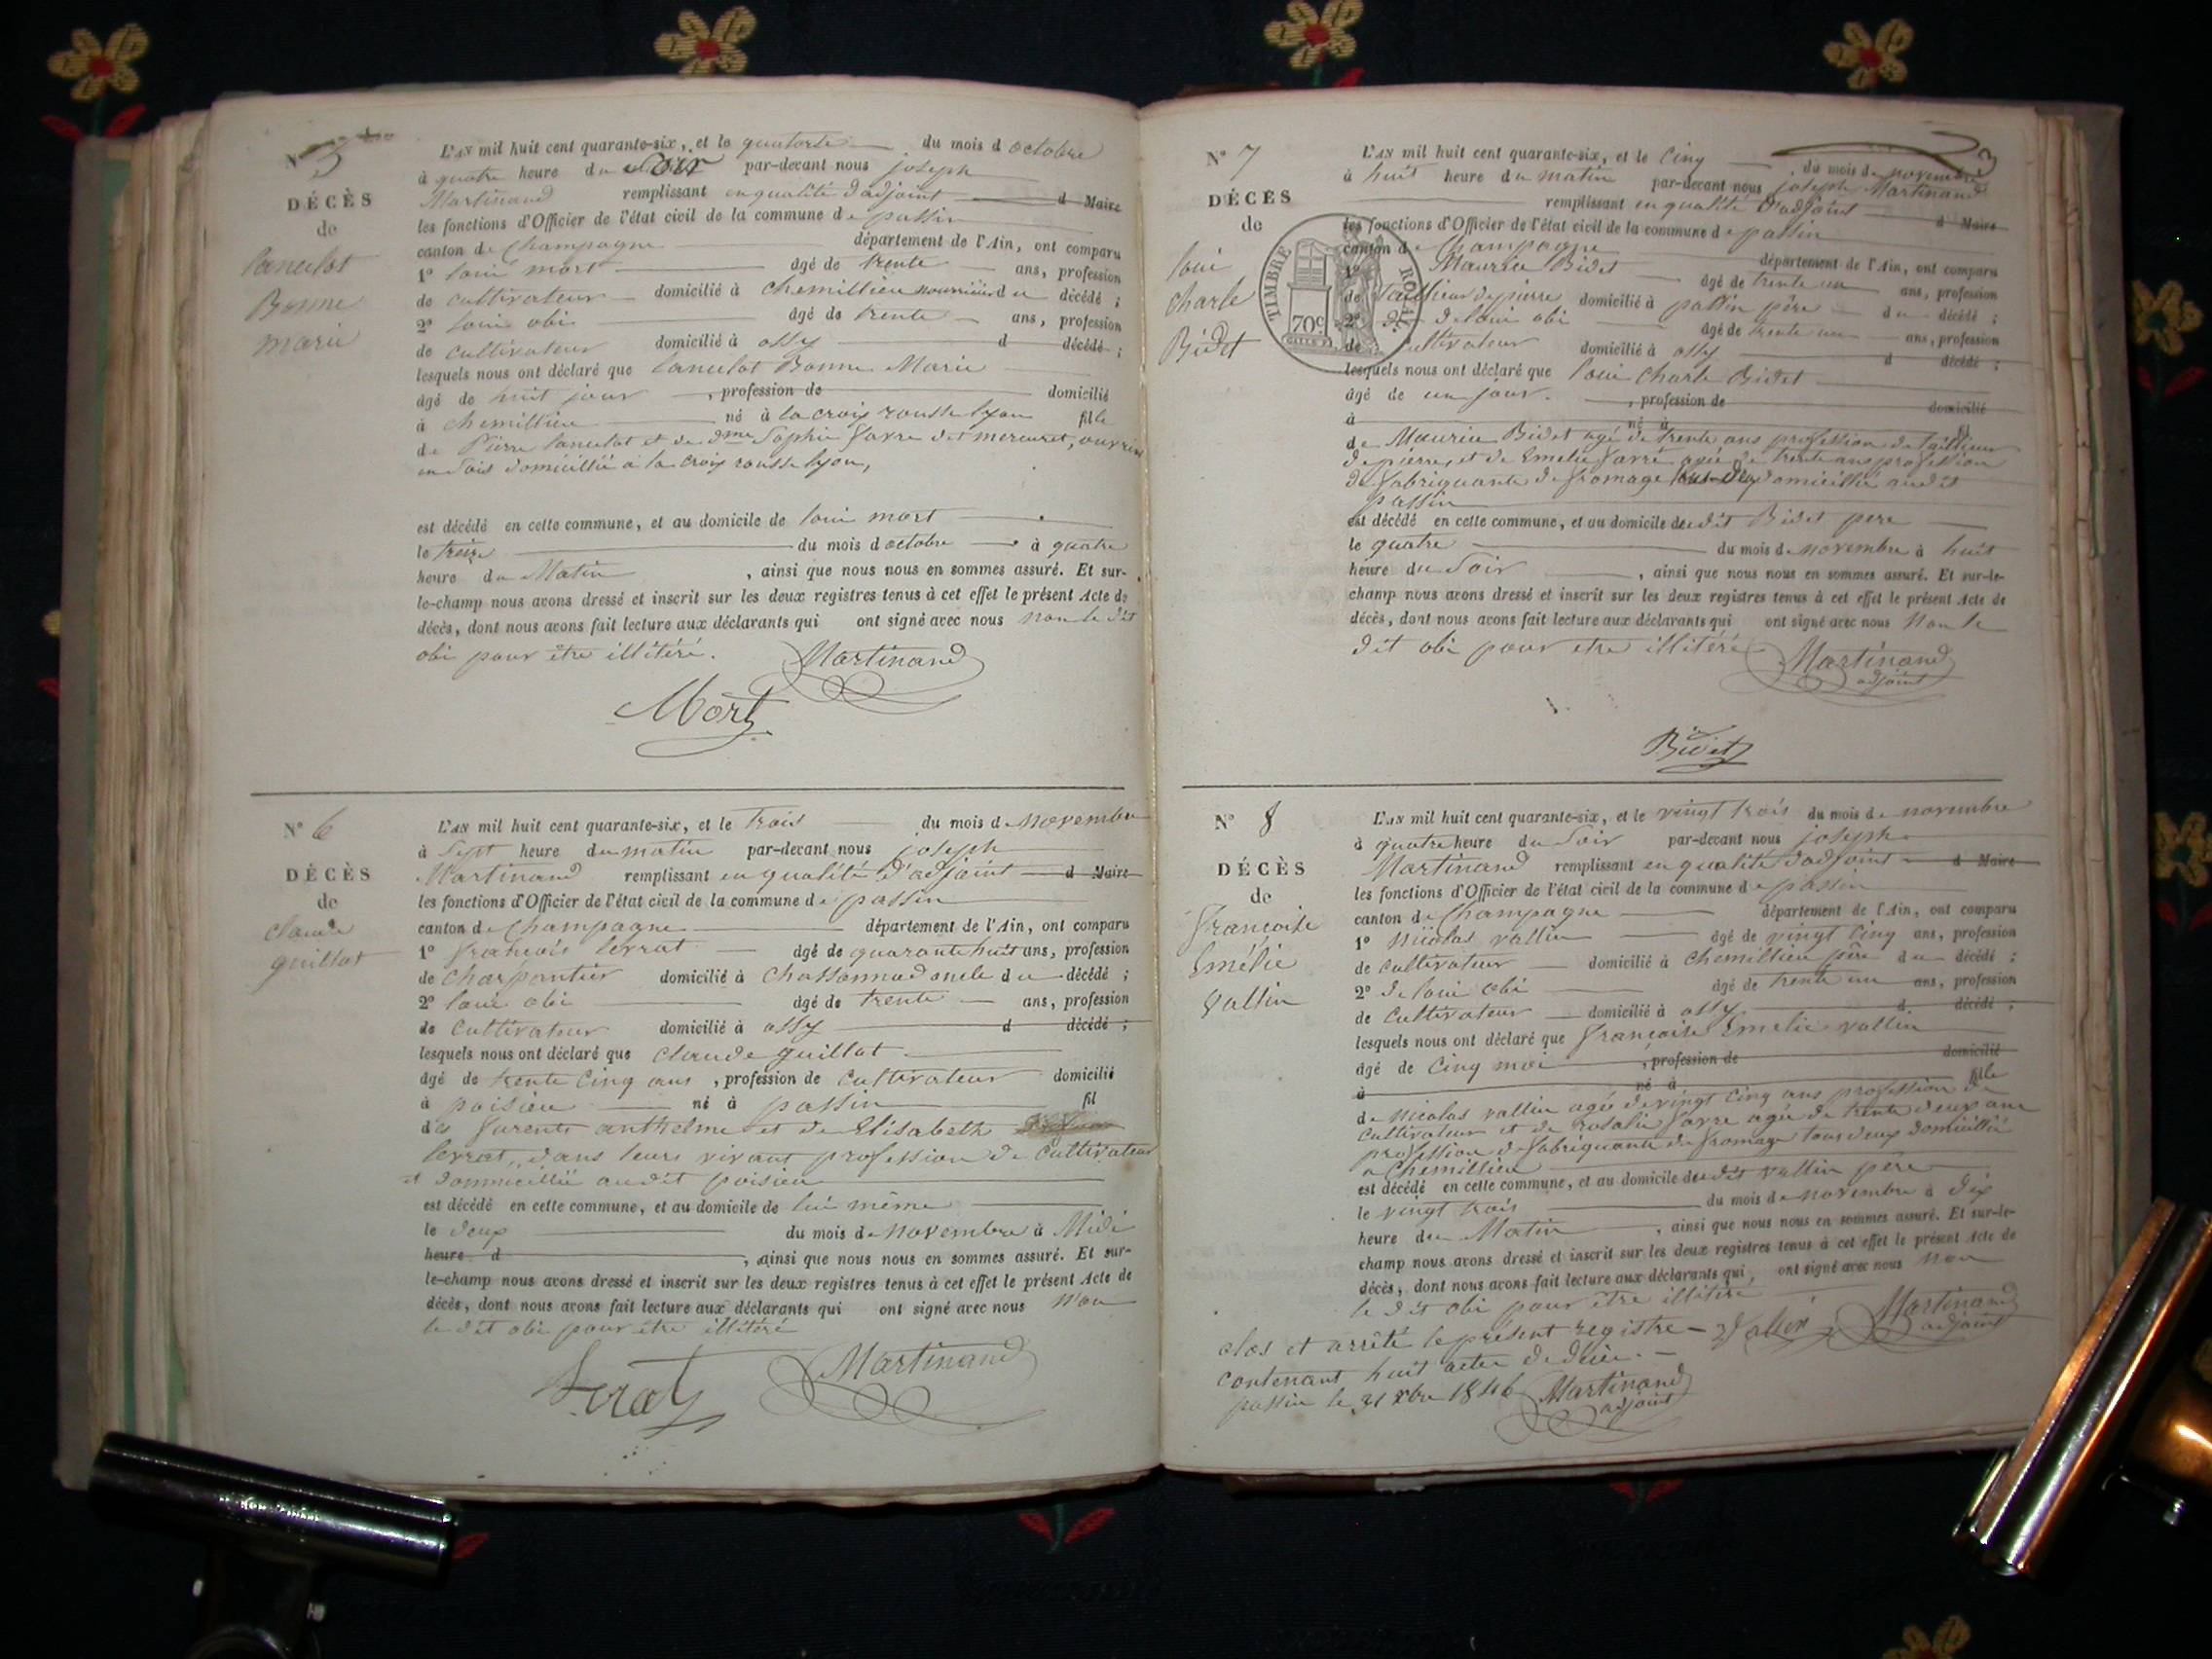 N° 5
DÉCÈS
de
lancelot
Bonne
marie
L'AN mil huit cent quarante-six, et le quatorte du mois d octobre
à quatre heure du soir par-devant nous joseph
Martinand remplissant en qualité d'adjoint d Maire
les fonctions d'Officier de l'état civil de la commune de passin
canton de Champagne département de l'Ain, ont comparu
1° loui mort âgé de trente ans, profession
de cultivateur domicilié à chemillieu du décédé ;
2° loui obi âgé de trente ans, profession
de cultivateur domicilié à ossy d décédé ;
lesquels nous ont déclaré que lancelot Bonne Marie
âgé de huit jour , profession de domicilié
à chemillieu né à la croix rousse lyon fille
de Pierre lancelot et de dme Sophie favre det mercuret, ouvrier
en soie domicillié a la croix rousse lyon,
est décédé en cette commune, et au domicile de loui mort
le treize du mois d octobre à quatre
heure du Matin , ainsi que nous nous en sommes assuré. Et sur-
le-champ nous avons dressé et inscrit sur les deux registres tenus à cet effet le présent Acte de
décès, dont nous avons fait lecture aux déclarants qui ont signé avec nous non le dit
obi pour être illitéré. Martinand
Mort
N° 6
DÉCÈS
de
claude
guillot
L'AN mil huit cent quarante-six, et le trois du mois de novembre
à sept heure du matin par-devant nous joseph
Martinand remplissant en qualité d'adjoint d Maire
les fonctions d'Officier de l'état civil de la commune de passin
canton de Champagne département de l'Ain, ont comparu
1° francois serrat âgé de quarante huit ans, profession
de charpantier domicilié à chassonnod oncle du décédé ;
2° loui obi âgé de trente ans, profession
de cultivateur domicilié à ossy d décédé ;
lesquels nous ont déclaré que claude guillot
âgé de trente cinq ans , profession de cultivateur domicilié
à poisieu né à passin fil
des furent anthelme et de Elisabeth
serrat, dans leurs vivant profession de cultivateur
et dommicillié audit poisieu
est décédé en cette commune, et au domicile de lui même
le deux du mois de novembre à Midi
heure d , ainsi que nous nous en sommes assuré. Et sur-
le-champ nous avons dressé et inscrit sur les deux registres tenus à cet effet le présent Acte de
décès, dont nous avons fait lecture aux déclarants qui ont signé avec nous non
le dit obi pour être illitéré
Serat Martinand
N° 7
DÉCÈS
de
loui
charle
Bidet
TIMBRE ROYAL
70c
L'AN mil huit cent quarante-six, et le cinq du mois de novembre
à huit heure du matin par-devant nous joseph Martinand
remplissant en qualité d'adjoint d Maire
les fonctions d'Officier de l'état civil de la commune de passin
canton de Champagne département de l'Ain, ont comparu
1° Maurice Bidet âgé de trente un ans, profession
de taillieur de pierre domicilié à passin père du décédé ;
2° de loui obi âgé de trente un ans, profession
de cultivateur domicilié à ossy d décédé ;
lesquels nous ont déclaré que loui charle Bidet
âgé de un jour. , profession de domicilié
à né à fil
de Maurice Bidet agé de trente ans profession de taillieur
de pierre, et de Emelie favre agée de trente ans profession
de fabriquante de fromage domicillié audit
passin
est décédé en cette commune, et au domicile dudit Bidet pere
le quatre du mois de novembre à huit
heure du soir , ainsi que nous nous en sommes assuré. Et sur-le-
champ nous avons dressé et inscrit sur les deux registres tenus à cet effet le présent Acte de
décès, dont nous avons fait lecture aux déclarants qui ont signé avec nous non le
dit obi pour etre illitéré Martinand
adjoint
Bidet
N° 8
DÉCÈS
de
françoise
Emélie
vallin
L'AN mil huit cent quarante-six, et le vingt trois du mois de novembre
à quatre heure du soir par-devant nous joseph
Martinand remplissant en qualité d'adjoint d Maire
les fonctions d'Officier de l'état civil de la commune de passin
canton de Champagne département de l'Ain, ont comparu
1° nicolas vallin âgé de vingt cinq ans, profession
de cultivateur domicilié à chemillieu père du décédé ;
2° de loui obi âgé de trente un ans, profession
de cultivateur domicilié à ossy d décédé ;
lesquels nous ont déclaré que françoise Emelie vallin
âgé de cinq moi , profession de domicilié
à né à fille
de nicolas vallin agée de vingt cinq ans profession de
cultivateur et de rosalie favre agée de trente deux ans
profession de fabriquante de fromage tous deux domicillié
a Chemillieu
est décédé en cette commune, et au domicile dudit vallin père
le vingt trois du mois de novembre à dix
heure du Matin , ainsi que nous nous en sommes assuré. Et sur-le-
champ nous avons dressé et inscrit sur les deux registres tenus à cet effet le présent Acte de
décès, dont nous avons fait lecture aux déclarants qui, ont signé avec nous non
le dit obi pour être illitéré
Martinand
adjoint
clos et arrêté le présent registre
contenant huit acte de décès.
passin le 31 xbre 1846 Martinand
adjoint